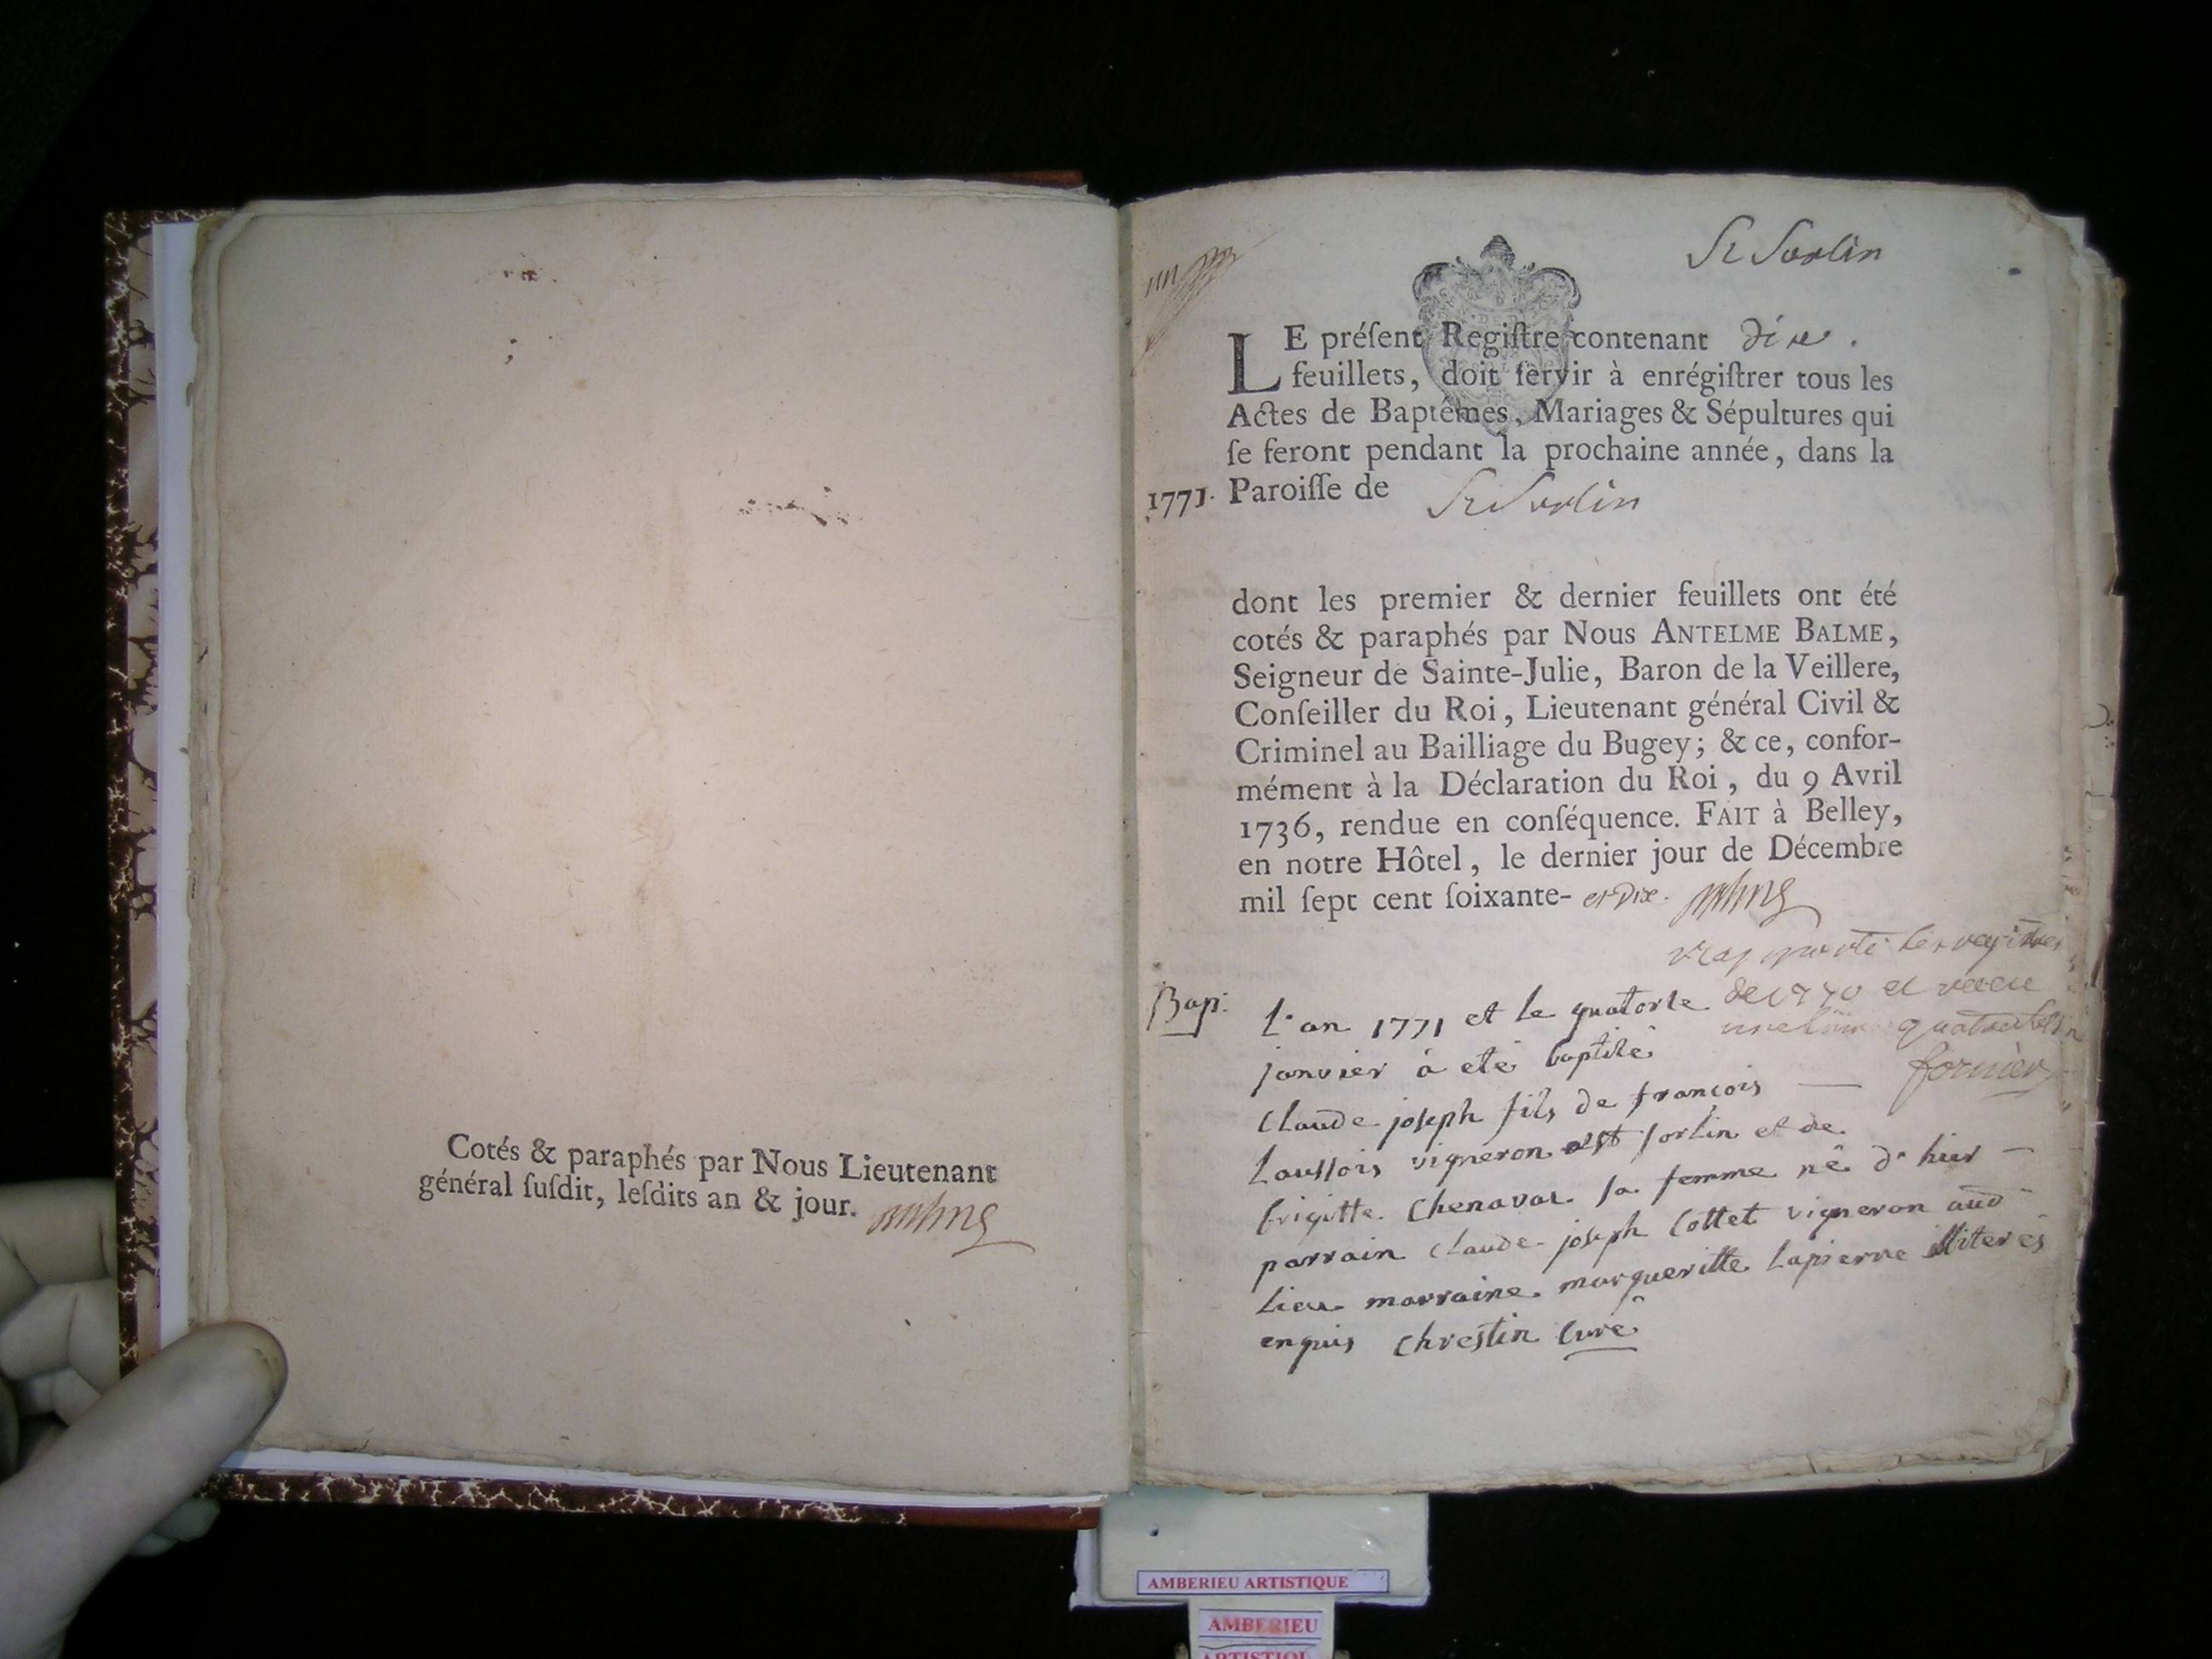 Cotés & paraphés par Nous Lieutenant
général ſuſdit, leſdits an & jour.
St Sorlin
LE préſent Regiſtre contenant dix.
feuillets, doit ſervir à enrégiſtrer tous les
Actes de Baptêmes, Mariages & Sépultures qui
ſe feront pendant la prochaine année, dans la
1771. Paroiſſe de St Sorlin
dont les premier & dernier feuillets ont été
cotés & paraphés par Nous ANTELME BALME,
Seigneur de Sainte-Julie, Baron de la Veillere,
Conſeiller du Roi, Lieutenant général Civil &
Criminel au Bailliage du Bugey; & ce, confor-
mément à la Déclaration du Roi, du 9 Avril
1736, rendue en conſéquence. FAIT à Belley,
en notre Hôtel, le dernier jour de Décembre
mil ſept cent ſoixante- et Dix.
rapporté les regitres
de 1770 et receu
fornier
Bap: L'an 1771 et le quatorze
janvier à eté baptisé
Claude joseph fils de françois
vigneron a st sorlin et de
brigitte Chenavaz sa femme né d'hier
parrain Claude-joseph Cottet vigneron aud
lieu marraine margueritte Lapierre illiterés
enquis Chrestin Curé
AMBERIEU ARTISTIQUE
AMBERIEU
ARTISTIQU